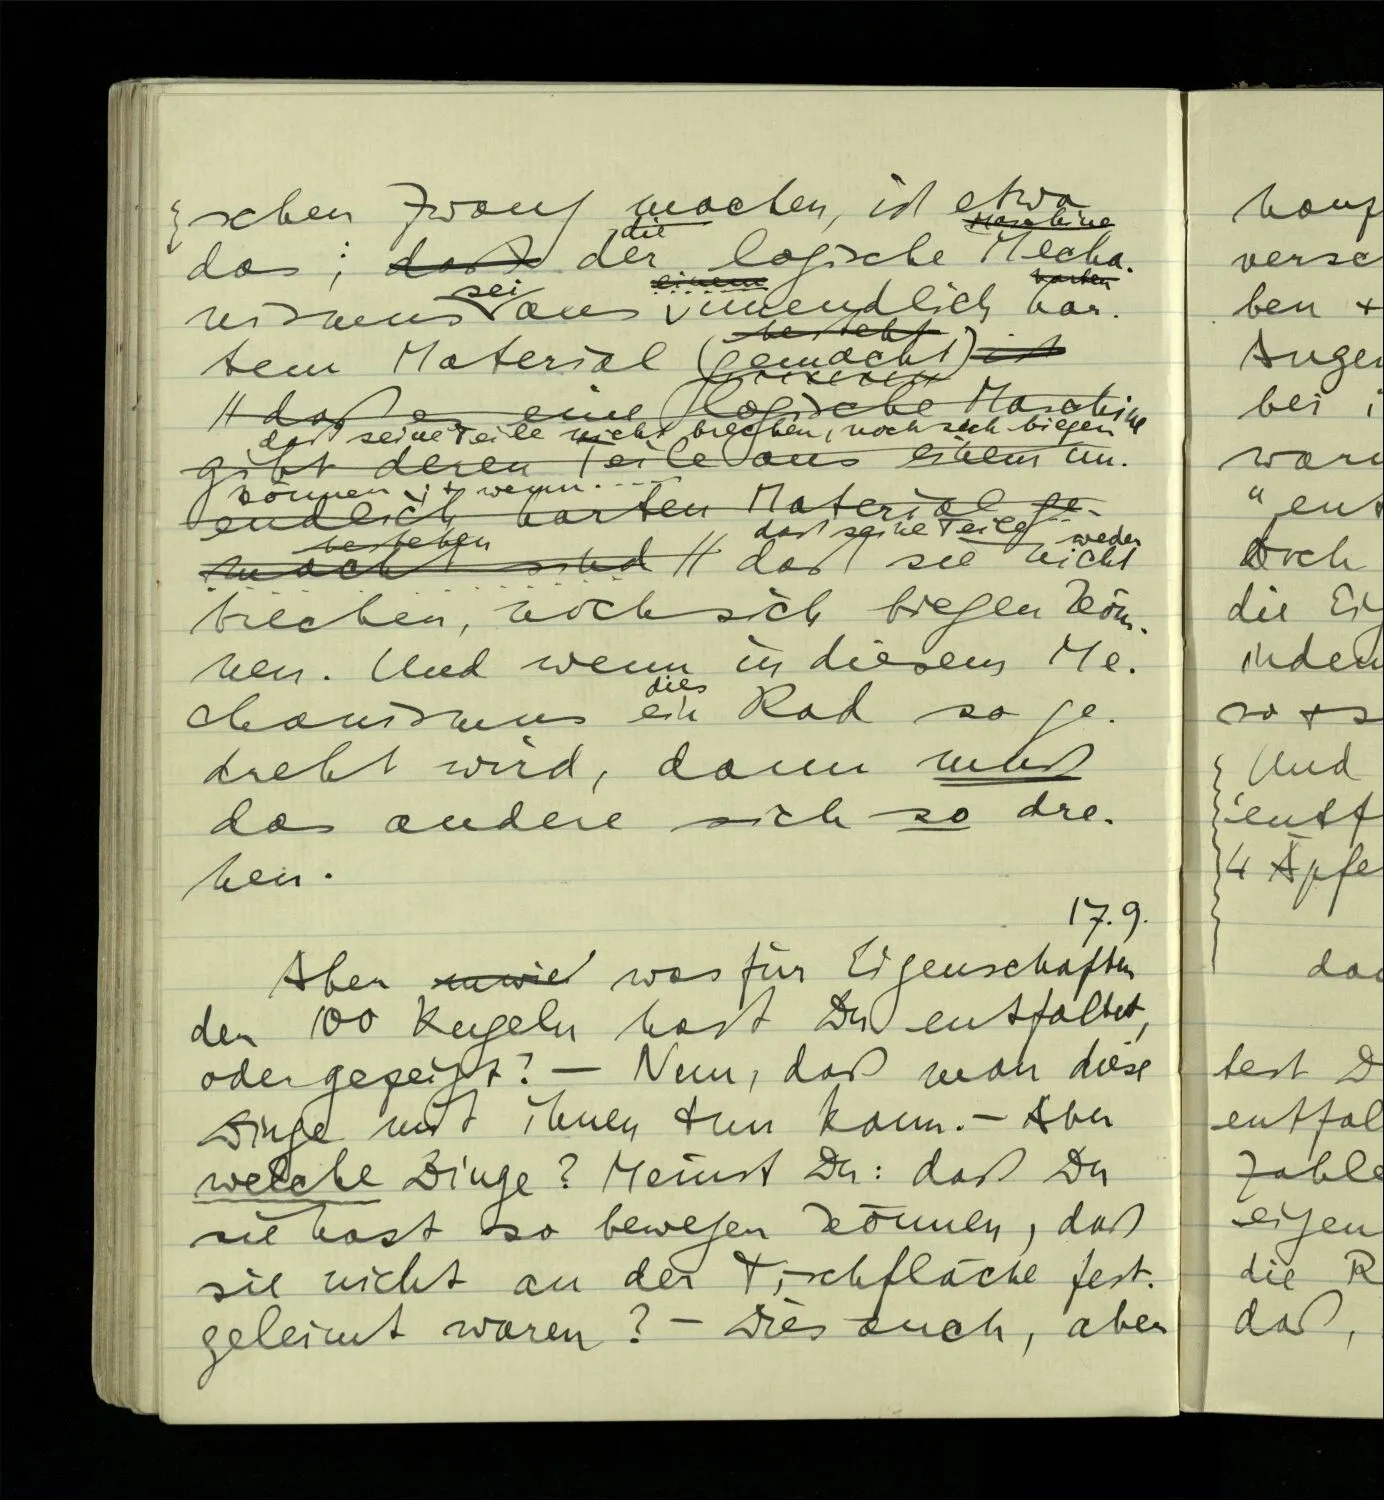 schen Zwang machen, ist etwa
die Maschine
das; daß der logische Mecha-
sei einem harten
nismus aus unendlich har-
besteht
tem Material (gemacht) ist
// daß es eine logische Maschine
daß seine Teile nicht brechen, noch sich biegen
gibt deren Teile aus einem un-
können ist wenn
endlich harten Material ge-
bestehen daß seine Teile weder
macht sind // daß sie nicht
brechen, noch sich biegen kön-
nen. Und wenn in diesem Me-
dies
chanismus ein Rad so ge-
dreht wird, dann muß
das andere sich so dre-
hen.
17.9.
Aber was für Eigenschaften
der 100 Kugeln hast Du entfaltet,
oder gezeigt? — Nun, daß man diese
Dinge mit ihnen tun kann. — Aber
welche Dinge? Meinst Du: daß Du
sie hast so bewegen können, daß
sie nicht an der Tischfläche fest-
geleimt waren? — Dies auch, aber
versc
ben +
Augen
bei i
waru
"ent
Doch
die Eig
indem
so + s
Und
'entf
4 Äpfe
da
test D
entfal
Zahle
eigen
die R
daß,